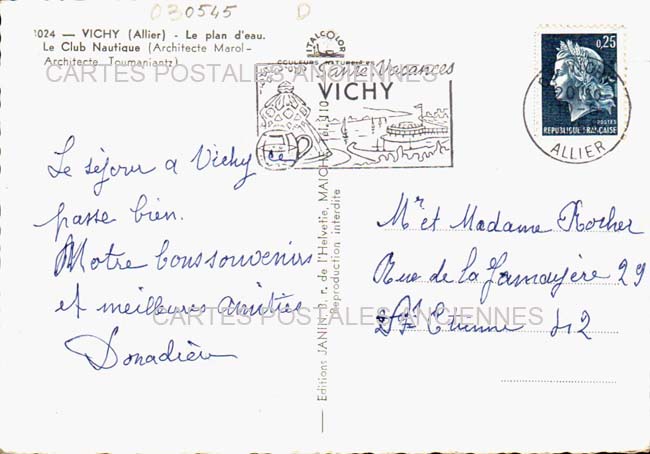 030545 D
1024 — VICHY (Allier) - Le plan d'eau.
Le Club Nautique (Architecte Marol -
Architecte Toumaniantz)
ITALCOLOR
COULEURS NATURELLES
Santé Vacances
VICHY
0,25
POSTES
REPUBLIQUE FRANÇAISE
ALLIER
CARTES POSTALES ANCIENNES
Le séjour a Vichy ce
passe bien.
Notre bons souvenirs
et meilleures amities
Donadieu
Editions JANIN, 8, r. de l'Helvétie, MAICHE Tél. 110
Reproduction interdite
Mr et Madame Rocher
Rue de la 29
St Etienne 42
CARTES POSTALES ANCIENNES